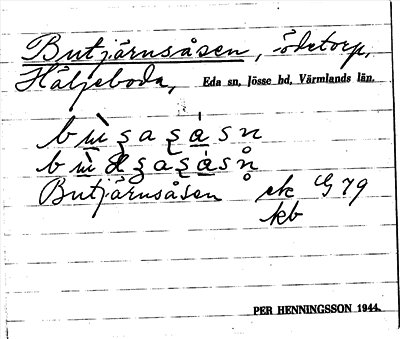 Butjärnsåsen, ödetorp,
Häljeboda, Eda sn, Jösse hd, Värmlands län.
Butjärnsåsen ek G 79
kb
PER HENNINGSSON 1944.